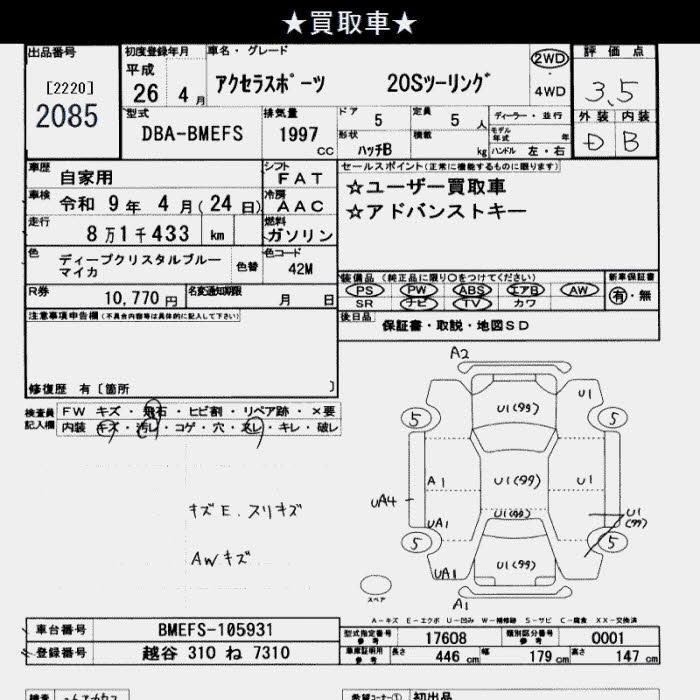 ★買取車★
出品番号
[2220]
2085
初度登録年月
平成
26 4 月
車名・グレード
アクセラスポーツ 20Sツーリング
2WD
・
4WD
評価点
3.5
外装 内装
D B
型式
DBA-BMEFS
排気量
1997 CC
ドア 5
定員 5 人
形状 ハッチB
積載 kg
ディーラー・並行
モデル年式 年
ハンドル 左・右
車歴
自家用
シフト
FAT
車検 令和 9 年 4 月(24 日)
冷房
AAC
走行
8万1千433 km
燃料
ガソリン
色
ディープクリスタルブルー
マイカ
色替
色コード
42M
R券
10,770 円
名変通知期限
月 日
セールスポイント(正常に機能するものに限ります)
☆ユーザー買取車
☆アドバンストキー
装備品(純正品に限り○をつけてください)
PS PW ABS エアB AW
SR ナビ TV カワ
新車保証書
有・無
後日品
保証書・取説・地図SD
注意事項申告欄(不具合内容等は具体的に記入して下さい)
修復歴 有〔箇所 〕
検査員
記入欄
FW キズ・飛石・ヒビ割・リペア跡・×要
内装 キズ・汚レ・コゲ・穴・スレ・キレ・破レ
キズE、スリキズ
AWキズ
A2
U1(99)
U1
5
5
A1
U1(99)
U1
UA4
U1(99)
UA1
U1
(99)
5
5
UA1
U1(99)
A1
スペア
A-キズ E-エクボ U-凹み W-補修跡 S-サビ C-腐食 XX-交換済
車台番号 BMEFS-105931
登録番号 越谷 310 ね 7310
型式指定番号
参考
17608
類別区分番号
参考
0001
車庫証明用
参考
長さ 446 cm
幅 179 cm
高さ 147 cm